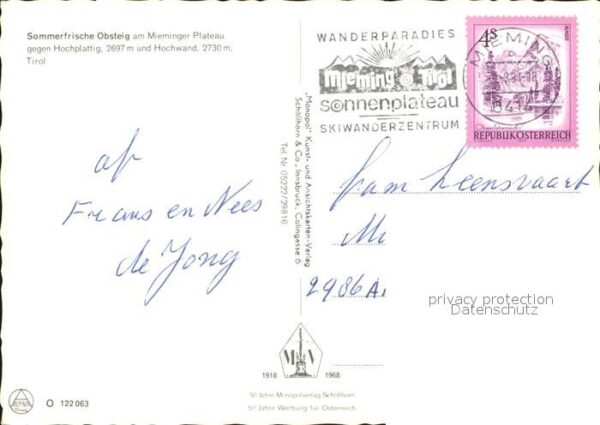 Sommerfrische Obsteig am Mieminger Plateau
gegen Hochplattig, 2697 m und Hochwand, 2730 m,
Tirol
WANDERPARADIES
Mieming Tirol
sonnenplateau
SKIWANDERZENTRUM
MIEMING
6414
4S
REPUBLIK ÖSTERREICH
"Monopol" Kunst- und Ansichtskarten-Verlag
Schöllhorn & Co., Innsbruck, Colingasse 6
Tel Nr 05222/29816
Frans en Nees
de Jong
Fam Leensvaart
2986 A
privacy protection
Datenschutz
M V
1918 1968
50 Jahre Monopolverlag Schöllhorn
50 Jahre Werbung für Österreich
O 122 063